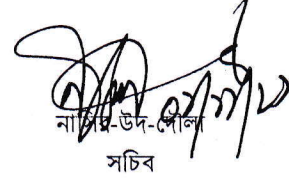 নাসির-উদ-দৌলা
সচিব